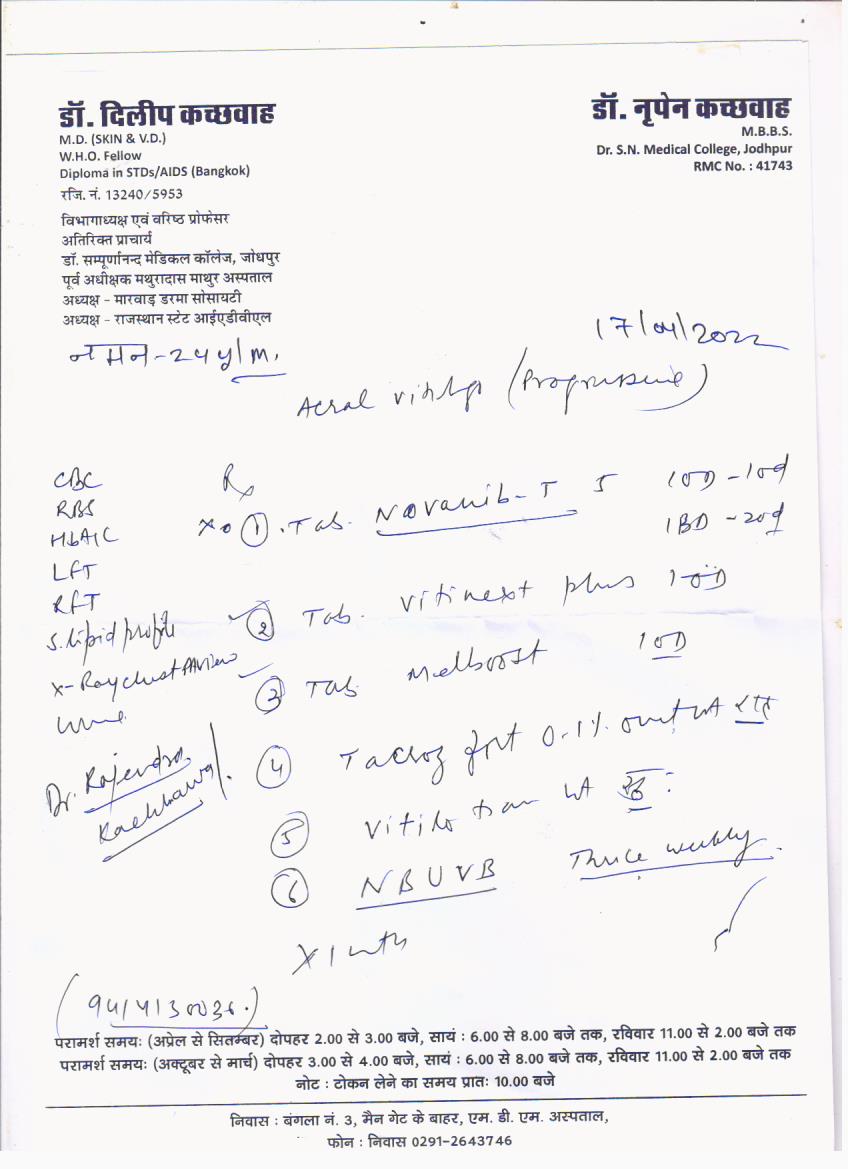 डॉ. दिलीप कच्छवाह
M.D. (SKIN & V.D.)
W.H.O. Fellow
Diploma in STDs/AIDS (Bangkok)
रजि. नं. 13240/5953
विभागाध्यक्ष एवं वरिष्ठ प्रोफेसर
अतिरिक्त प्राचार्य
डॉ. सम्पूर्णानन्द मेडिकल कॉलेज, जोधपुर
पूर्व अधीक्षक मथुरादास माथुर अस्पताल
अध्यक्ष - मारवाड़ डरमा सोसायटी
अध्यक्ष - राजस्थान स्टेट आईएडीवीएल
डॉ. नृपेन कच्छवाह
M.B.B.S.
Dr. S.N. Medical College, Jodhpur
RMC No. : 41743
17/04/2022
नमन - 24 y/M.
Acral vitiligo (Progressive)
CBC
RBS
HbA1C
LFT
RFT
S. lipid profile
X-Ray chest PA View
Urine
Dr. Rajendra
Kachhawa
Rx
① Tab. Novanib-T 5 1OD - 10d
1BD - 20d
② Tab. Vitinext plus 1 OD
③ Tab Melboost 1OD
④ Tacroz fort 0.1% oint LA रात
⑤ Vitilo LA
⑥ NBUVB Thrice weekly.
X 1 mth
(9414130036.)
परामर्श समयः (अप्रेल से सितम्बर) दोपहर 2.00 से 3.00 बजे, सायं : 6.00 से 8.00 बजे तक, रविवार 11.00 से 2.00 बजे तक
परामर्श समयः (अक्टूबर से मार्च) दोपहर 3.00 से 4.00 बजे, सायं : 6.00 से 8.00 बजे तक, रविवार 11.00 से 2.00 बजे तक
नोट : टोकन लेने का समय प्रातः 10.00 बजे
निवास : बंगला नं. 3, मैन गेट के बाहर, एम. डी. एम. अस्पताल,
फोन : निवास 0291-2643746